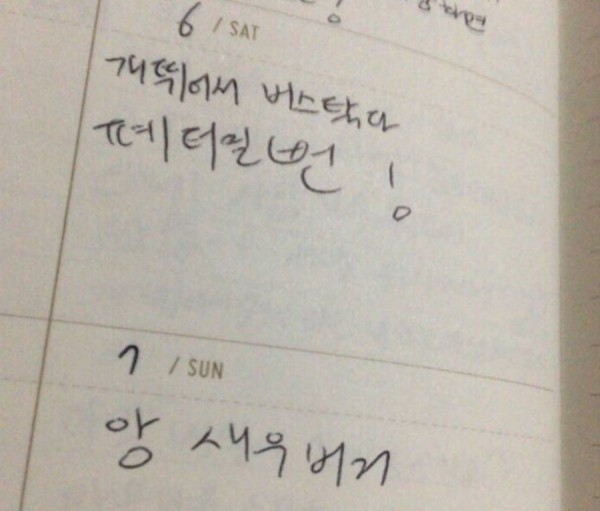 6 / SAT
개뛰어서 버스탔다
폐터질뻔 !
7 / SUN
앙 새우버거